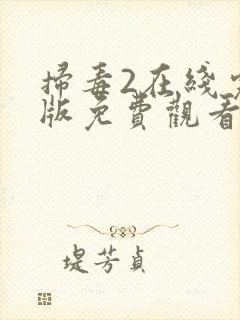 掃毒2在綫
版免費觀看
堤芳貞